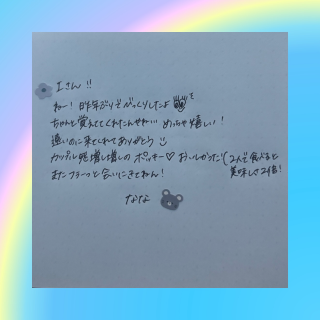 Iさん!!
ねー!昨年ぶりでびっくりしたよ
ちゃんと覚えててくれたんやね… めっちゃ嬉しい!
遠いのに来てくれてありがとう
カップル 増し増しの ポッキー♡ おいしかった!(2人で食べると
美味しさ2倍!
またフラーっと会いにきてねん!
なな